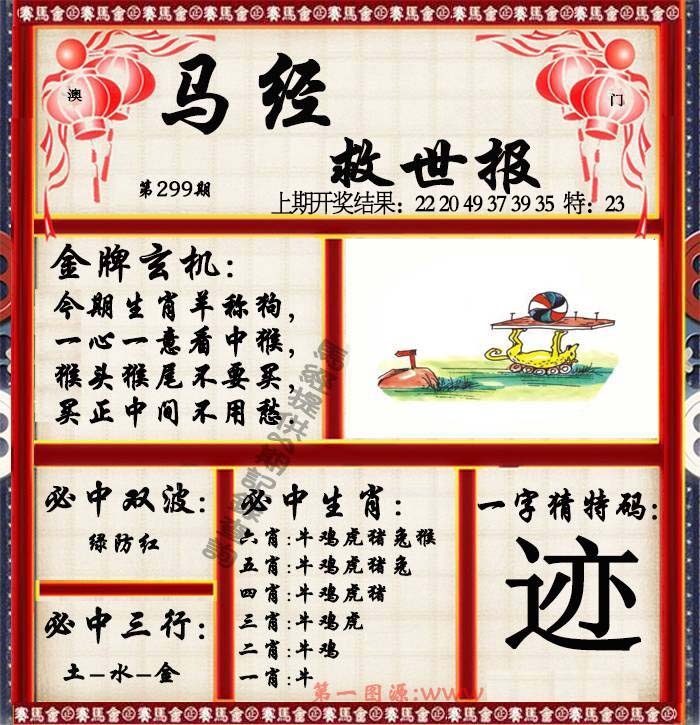 賽馬會 賽馬會 賽馬會 賽馬會 賽馬會 賽馬會 賽馬會 賽馬會
澳
门
马经
救世报
第299期
上期开奖结果：22 20 49 37 39 35 特：23
金牌玄机：
今期生肖羊称狗，
一心一意看中猴，
猴头猴尾不要买，
买正中间不用愁.
必中双波：
绿防红
必中三行：
土-水-金
必中生肖：
六肖:牛鸡虎猪兔猴
五肖:牛鸡虎猪兔
四肖:牛鸡虎猪
三肖:牛鸡虎
二肖:牛鸡
一肖:牛
一字猜特码：
迹
第一图源:www